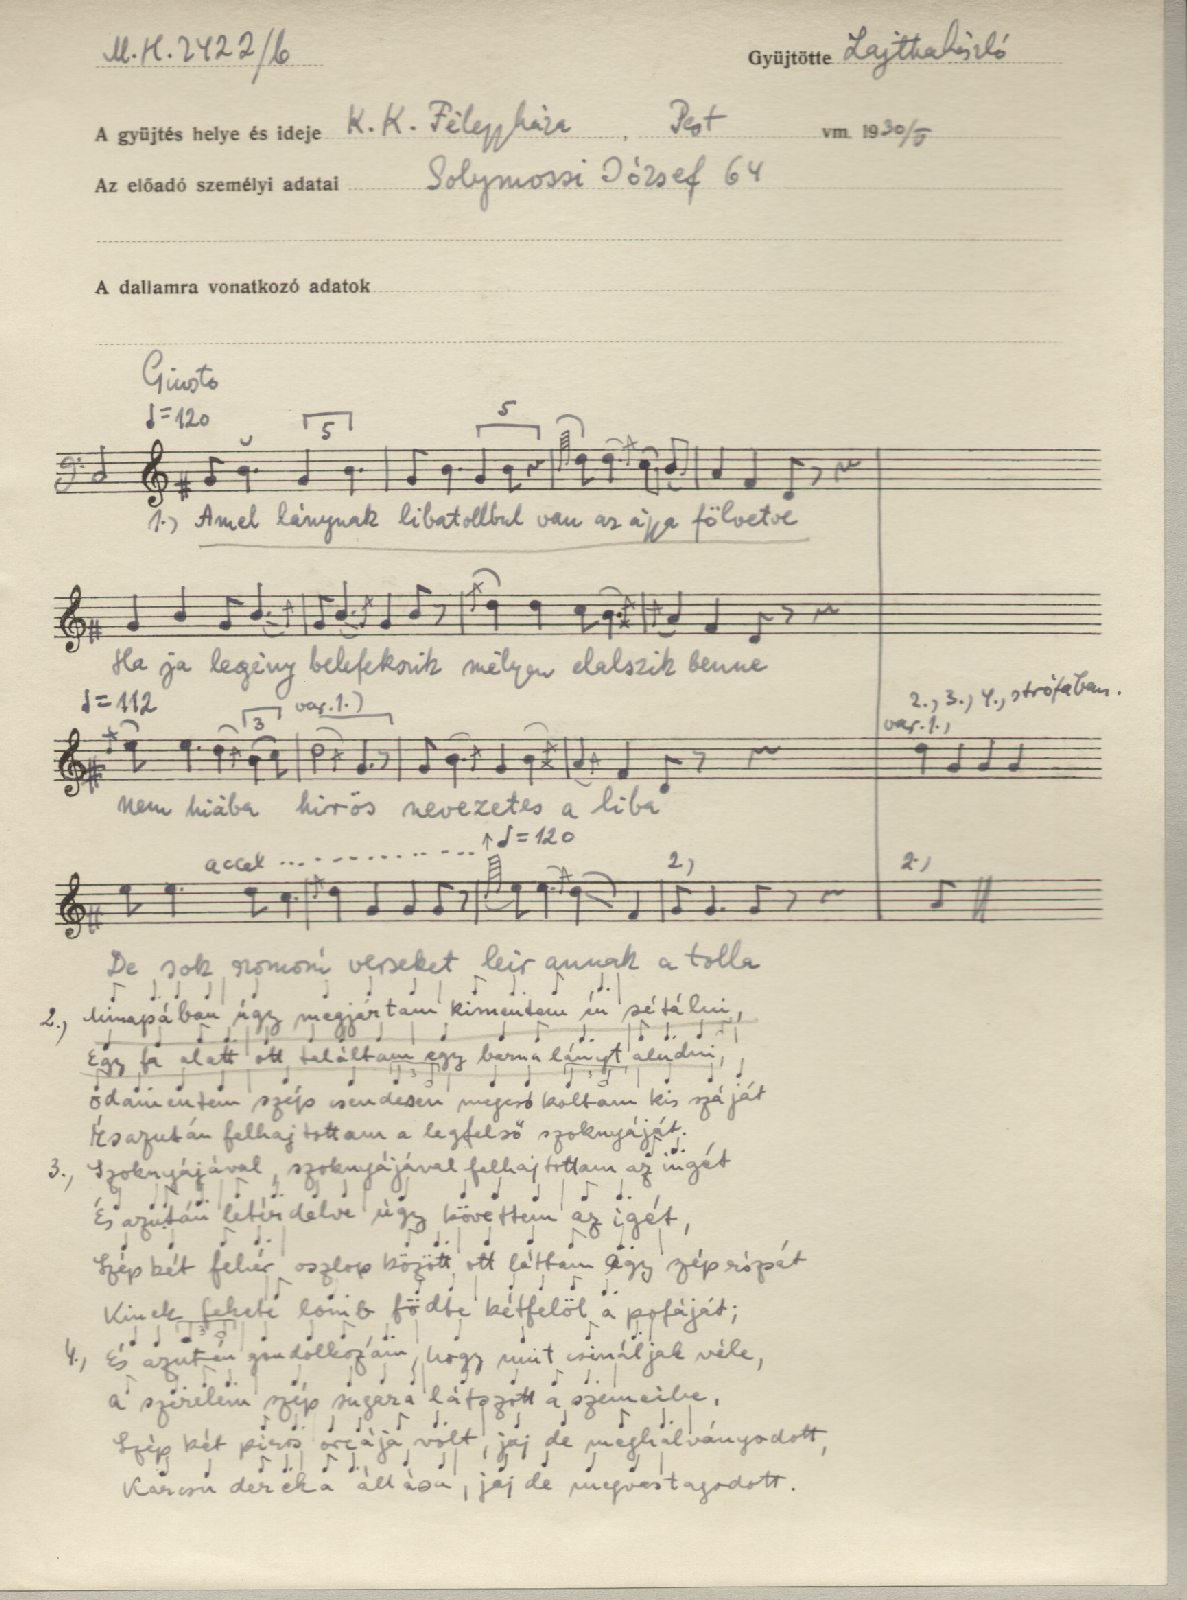 M.H.2422/b
Gyüjtötte Lajtha László
A gyüjtés helye és ideje K. K. Félegyháza, Pest vm. 1930/5
Az előadó személyi adatai Solymossi József 64
A dallamra vonatkozó adatok
Giusto
♩=120
5
5
1.) Amel lánynak libatollbul van az ájja fölvetve
Ha ja legény belefekszik mélyen elalszik benne
♩=112
3
var.1.)
2., 3., 4., strófában.
var.1.,
nem hiába hirös nevezetes a liba
accel
♩=120
2,
2.,
De sok szomorú verseket leir annak a tolla
2., Minapában úgy megjártam kimentem én sétálni,
Egy fa alatt ott találtam egy barna lányt aludni,
Odamentem szép csendesen megcsókoltam kis száját
Ésazután felhajtottam a legfelső szoknyáját.
3., Szoknyájával, szoknyájával felhajtottam az ingét
És azután letérdelve úgy követtem az igét,
Szép két fehér oszlop között ott láttam egy széprózsát
Kinek fekete lomb födte kétfelöl a pofáját;
4., És azután gondolkozám, hogy mit csináljak véle,
a szerelem szép sugara látszott a szemeibe,
Szép két piros orcája volt, jaj de meghalványodott,
Karcsu dereka állása, jaj de megvastagodott.